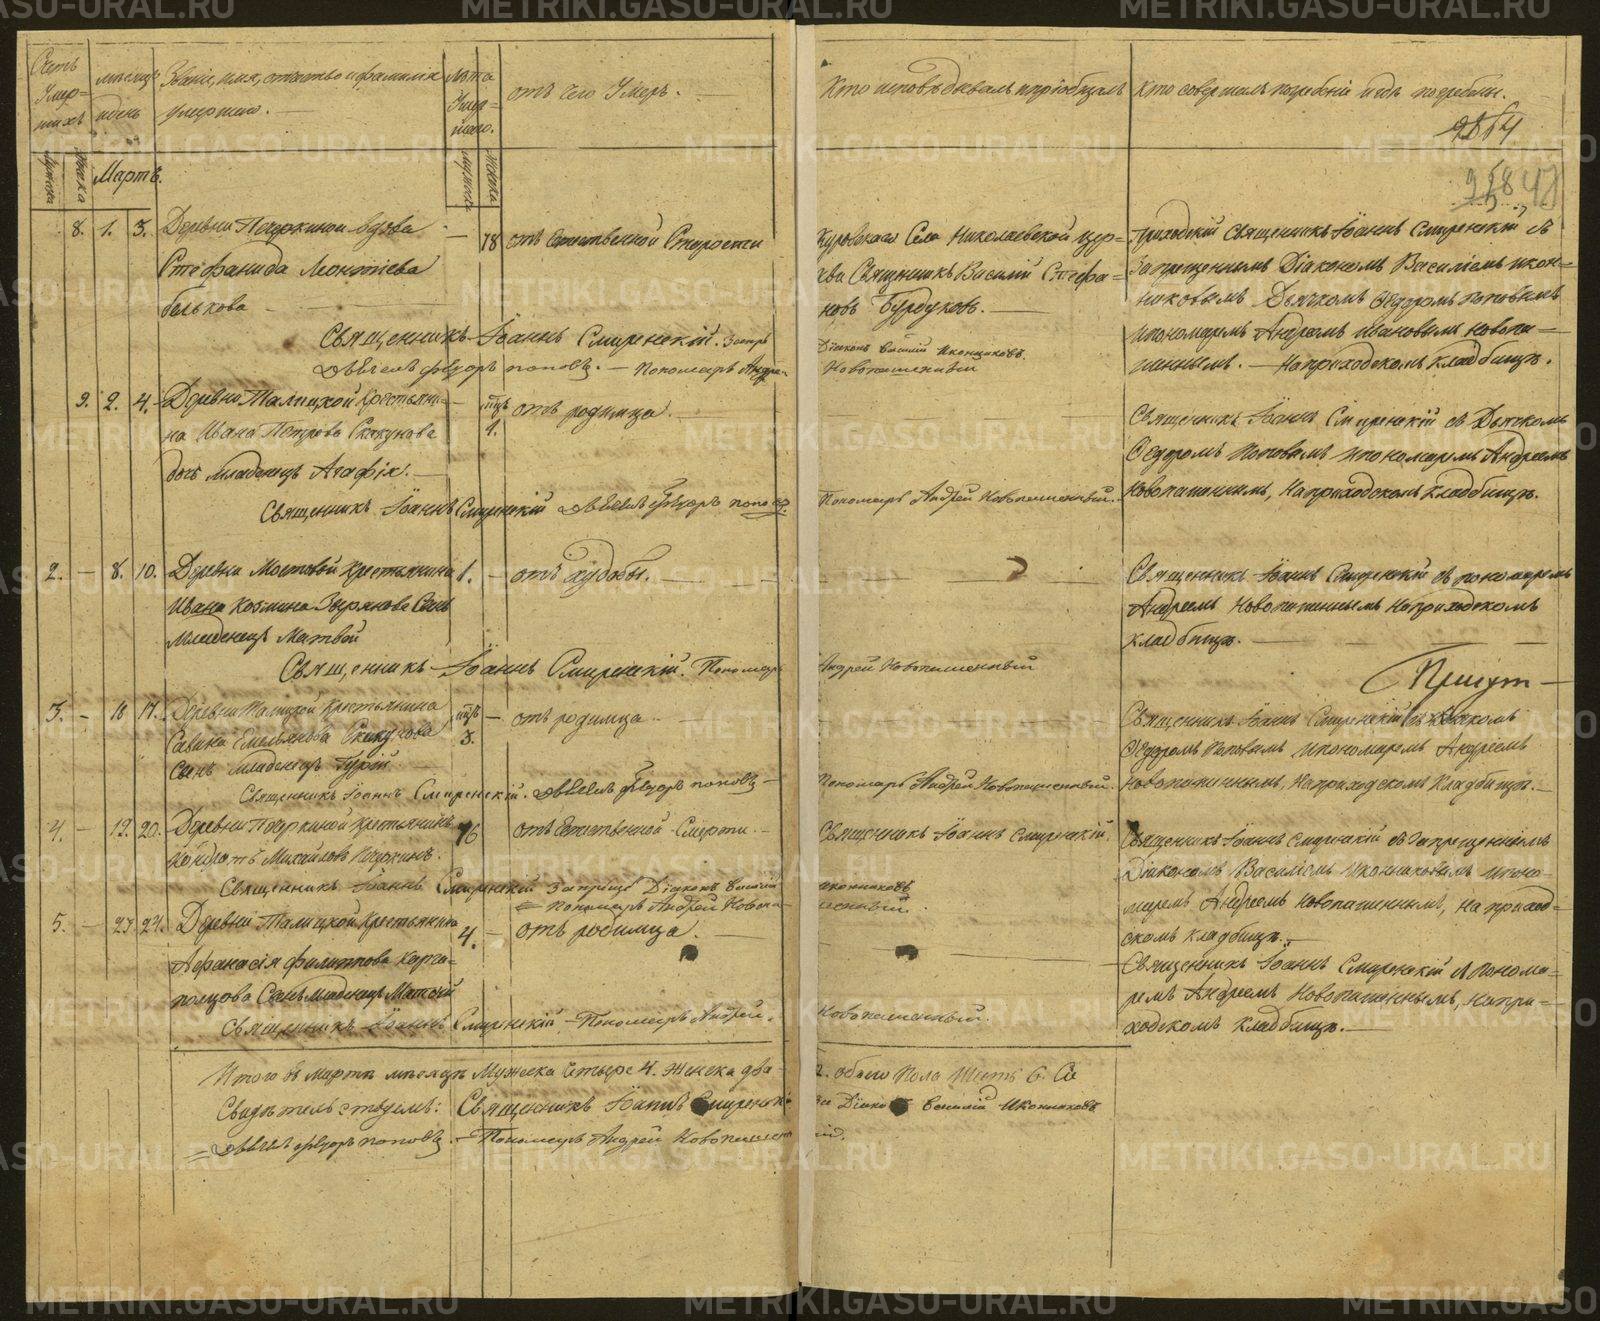 Счетъ Умер-шихъ
мѣсяцъ и день
Званіе, имя, отчество и фамилія умершаго.
Лѣта Умер-шаго.
отъ чего Умеръ.
Кто исповѣдывалъ и пріобщалъ
Кто совершалъ погребеніе и гдѣ погребены.
мужска
женска
Мартъ.
мужска
женска
8. 1. 3. Деревни Пѣшкиной вдова
Стефанида Леонтіева
белькова
78
отъ Естественной Старости
Священникъ Василій Стефа-
новъ Бурдуковъ.
Приходскій Священникъ Іоаннъ Смиренскій съ
Запрещеннымъ Діакономъ Василіемъ Икон-
никовымъ Дьячкомъ Ѳедоромъ Поповымъ
Ипономаремъ Андреемъ Ивановымъ Новопа-
шеннымъ. На приходскомъ кладбищѣ.
Священникъ Іоаннъ Смиренскій.
Дьячекъ Ѳеодоръ Поповъ. Пономарь Андрей
Діаконъ Василій Иконниковъ.
Новопашенный
9. 2. 4. Деревни Талицкой Крестьяни-
на Ивана Петрова Скакунова
дочь младенецъ Агафія.
мцъ
1.
отъ родимца.
Священникъ Іоаннъ Смиренскій съ Дьячкомъ
Ѳедоромъ Поповымъ и пономаремъ Андреемъ
Новопашеннымъ, На приходскомъ кладбищѣ.
Священникъ Іоаннъ Смиренскій Дьячекъ Ѳеодоръ Поповъ.
Пономарь Андрей Новопашенный.
2. 8. 10. Деревни Мостовой Крестьянина
Ивана Козмина Зырянова Сынъ
Младенецъ Матвей
1.
отъ худобы.
Священникъ Іоаннъ Смиренскій съ пономаремъ
Андреемъ Новопашеннымъ На приходскомъ
кладбищѣ.
Священникъ Іоаннъ Смиренскій. Пономарь
Андрей Новопашенный
3. 16 17. Деревни Талицкой Крестьянина
Савина Емельянова Скакунова
Сынъ младенецъ Гурій
мцъ
3.
отъ родимца
Священникъ Іоаннъ Смиренскій съ Дьячкомъ
Ѳедоромъ Поповымъ и пономаремъ Андреемъ
Новопашеннымъ, На приходскомъ Кладбищѣ.
Священникъ Іоаннъ Смиренскій. Дьячекъ Ѳеодоръ Поповъ
Пономарь Андрей Новопашенный.
4. 19. 20. Деревни Пѣшкиной Крестьянинъ
Кондратъ Михайловъ Пѣшкинъ.
76
отъ Естественной Смерти.
Священникъ Іоаннъ Смиренскій.
Священникъ Іоаннъ Смиренскій съ Запрещеннымъ
Діакономъ Василіемъ Иконниковымъ и поно-
маремъ Андреемъ Новопашеннымъ, на приход-
скомъ кладбищѣ.
Священникъ Іоаннъ Смиренскій Діаконъ Василій
Иконниковъ
Пономарь Андрей Новопа-
шенный.
5. 23 24. Деревни Талицкой Крестьянина
Афанасія Филиппова Карга-
польцова Сынъ младенецъ Матвей
4.
отъ родимца.
Священникъ Іоаннъ Смиренскій и Понома-
ремъ Андреемъ Новопашеннымъ, на при-
ходскомъ кладбищѣ.
Священникъ Іоаннъ Смиренскій Пономарь Андрей
Новопашенный.
Итого въ Мартѣ мѣсяцѣ Мужеска Четыре 4. Женска два
2. обоего Пола Шесть 6. Се
Свидѣтельствуемъ: Священникъ Іоаннъ Смиренскій
Діаконъ Василій Иконниковъ
Дьячекъ Ѳеодоръ Поповъ. Пономарь Андрей Новопашенный.
METRIKI.GASO-URAL.RU